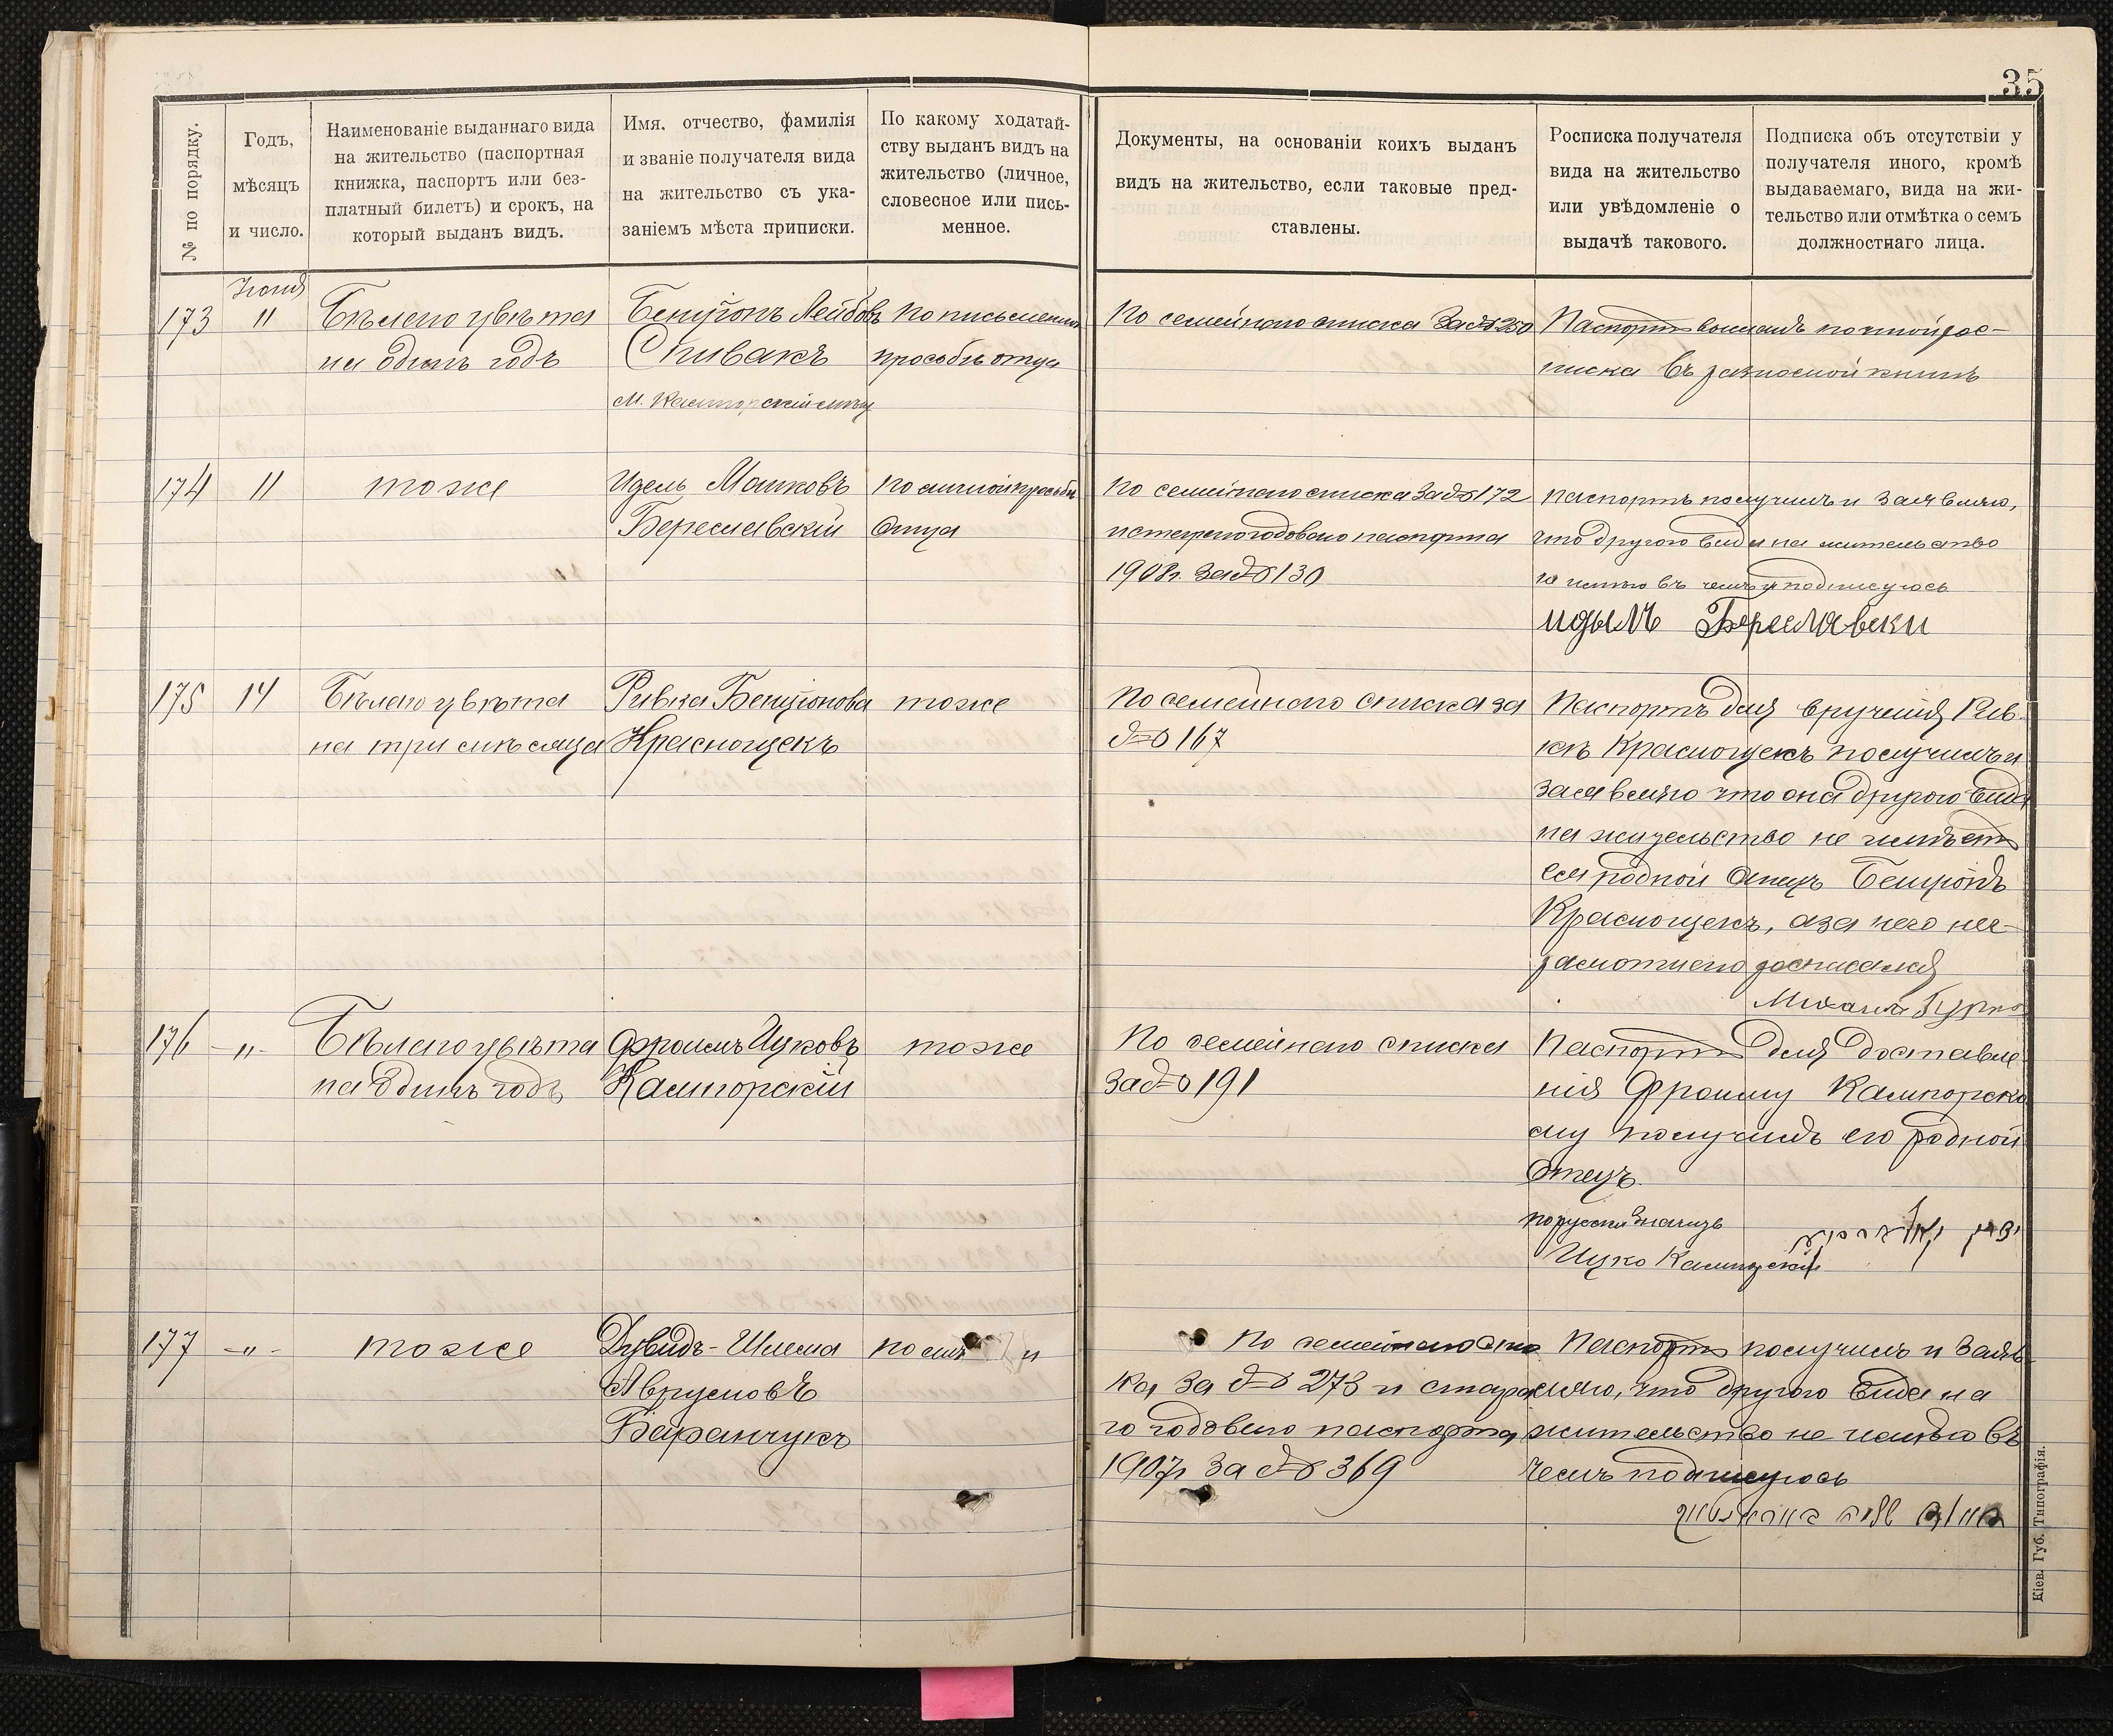 35
№ по порядку.
Годъ,
мѣсяцъ
и число.
Наименованіе выданнаго вида
на жительство (паспортная
книжка, паспортъ или без-
платный билетъ) и срокъ, на
который выданъ видъ.
Имя, отчество, фамилія
и званіе получателя вида
на жительство съ ука-
заніемъ мѣста приписки.
По какому ходатай-
ству выданъ видъ на
жительство (личное,
словесное или пись-
менное.
Документы, на основаніи коихъ выданъ
видъ на жительство, если таковые пред-
ставлены.
Росписка получателя
вида на жительство
или увѣдомленіе о
выдачѣ такового.
Подписка объ отсутствіи у
получателя иного, кромѣ
выдаваемаго, вида на жи-
тельство или отмѣтка о семъ
должностнаго лица.
173
11
Бѣлаго цвѣта
на одинъ годъ
Бенціонъ Лейбовъ
Спивакъ
По письменной
просьбѣ отца
По семейнаго списка за № 250
Паспортъ высланъ почтой рос-
писка въ разносной книгѣ
174
11
тоже
Идель Мошковъ
Береславскій
По личной просьбѣ
Отца
По семейнаго списка за № 172
и стараго годоваго паспорта
1908 г. за № 130
паспортъ получилъ и заявляю,
что другого вида на жительство
не имѣю въ чемъ и подписуюсь
идылъ Береславски
175
14
Бѣлаго цвѣта
на три мѣсяца
Ривка Бенціонова
Краснощекъ
тоже
По семейнаго списка за
№ 167
Паспортъ для врученія Рив-
кѣ Краснощекъ получилъ и
заявляю что она другого вида
на жительство не имѣетъ
ея родной отецъ Бенціонъ
Краснощекъ, а за него не-
грамотнаго росписался
176
-"-
Бѣлаго цвѣта
на одинъ годъ
Фроимъ Ицковъ
Кашпорскій
тоже
По семейнаго списка
за № 191
Паспортъ для доставле
нія Фроиму Кашпорско
му получилъ его родной
Отецъ.
по русски значитъ
Ицко Кашпорскій
177
-"-
тоже
Дувидъ-Шлема
Авруמовъ
Баранчукъ
По семейнаго спис
ка за № 273 и стара
го годоваго паспорта
1907 г за № 369
Паспортъ получилъ и заяв-
ляю, что другого вида на
жительство не имѣю въ
чемъ подписуюсь
Кіев. Губ. Типографія.